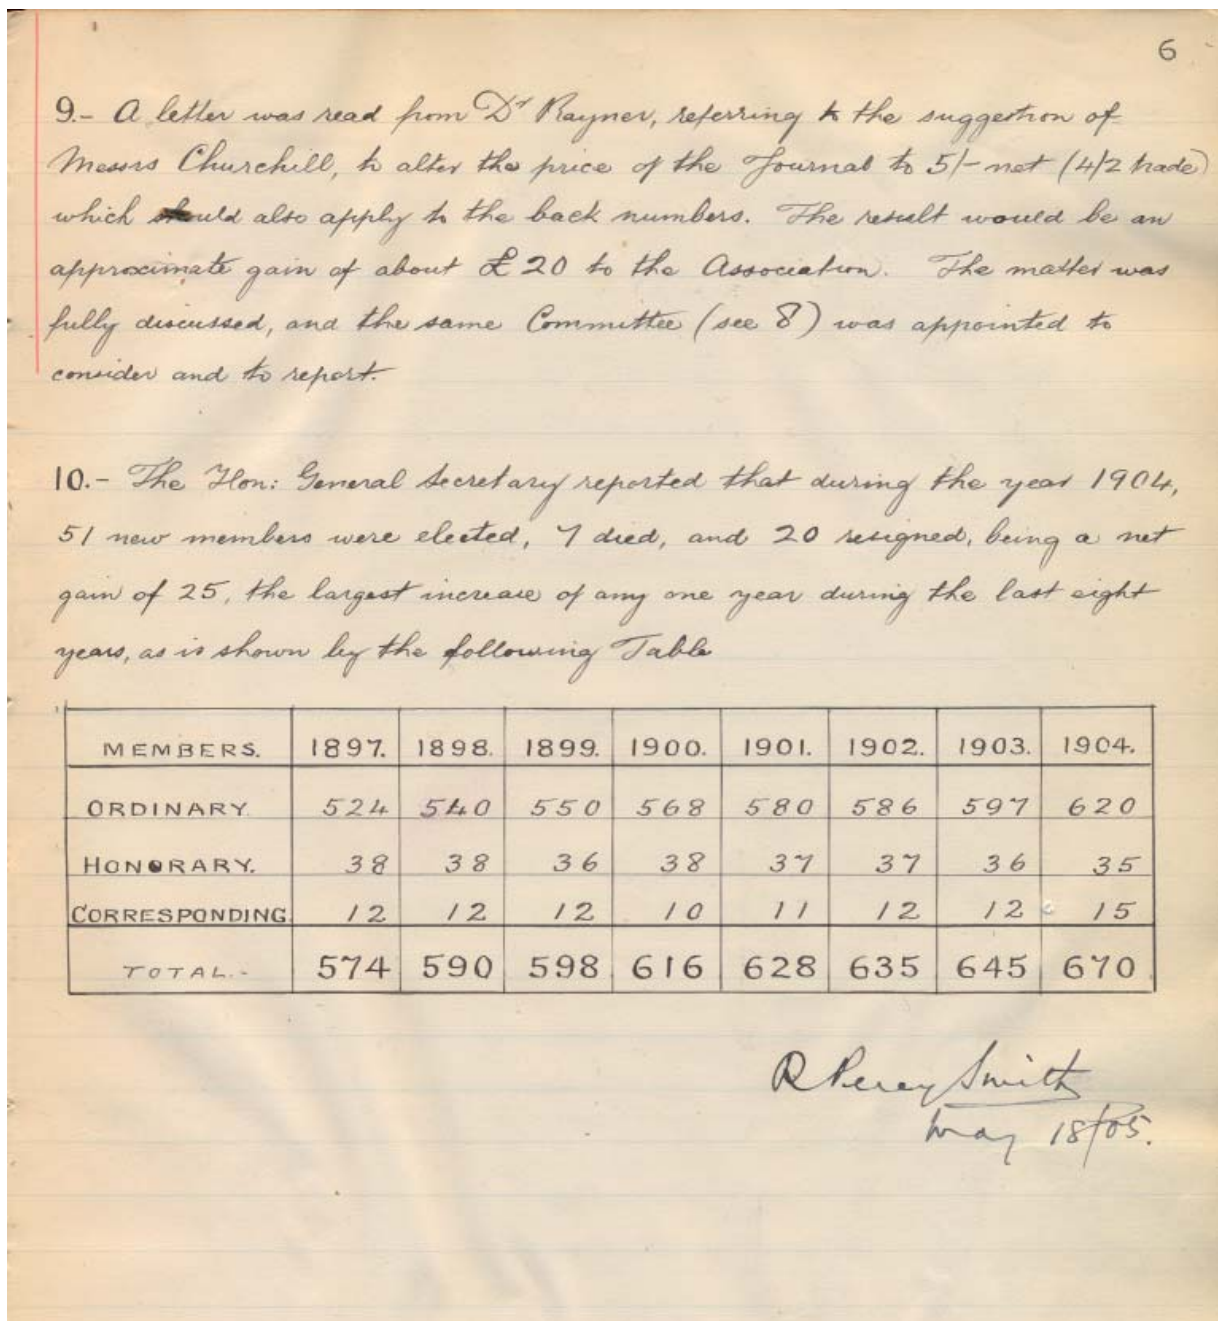 6
9.- A letter was read from Dr Rayner, referring to the suggestion of
Messrs Churchill, to alter the price of the Journal to 5/- net (4/2 trade)
which should also apply to the back numbers. The result would be an
approximate gain of about £20 to the Association. The matter was
fully discussed, and the same Committee (see 8) was appointed to
consider and to report.
10.- The Hon: General Secretary reported that during the year 1904,
51 new members were elected, 7 died, and 20 resigned, being a net
gain of 25, the largest increase of any one year during the last eight
years, as is shown by the following Table
MEMBERS. 1897. 1898. 1899. 1900. 1901. 1902. 1903. 1904.
ORDINARY 524 540 550 568 580 586 597 620
HONORARY. 38 38 36 38 37 37 36 35
CORRESPONDING. 12 12 12 10 11 12 12 15
TOTAL.- 574 590 598 616 628 635 645 670
R Percy Smith
May 18/05.